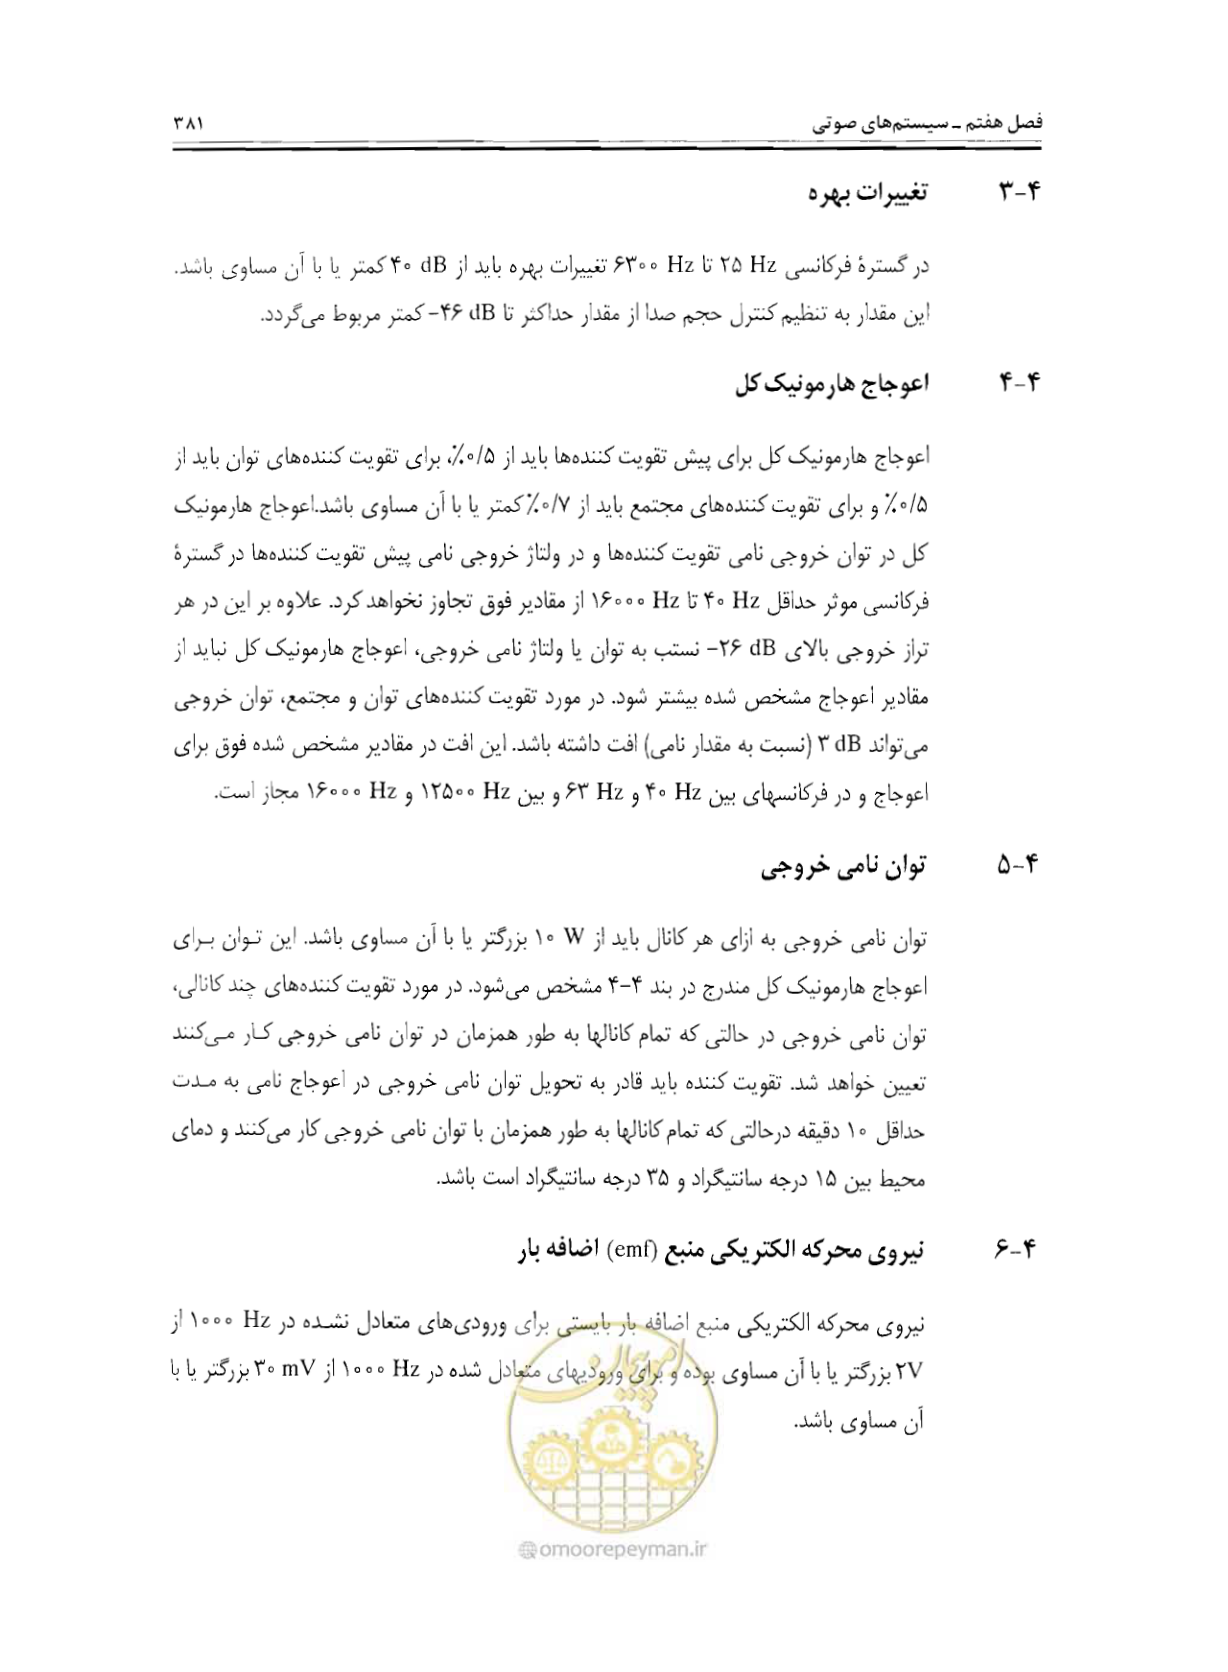 فصل هفتم ـ سیستم‌های صوتی ۳۸۱
۴-۳ تغییرات بهره
در گسترهٔ فرکانسی ۲۵ Hz تا ۶۳۰۰ Hz تغییرات بهره باید از ۴۰ dB کمتر یا با آن مساوی باشد.
این مقدار به تنظیم کنترل حجم صدا از مقدار حداکثر تا ۴۶ dB- کمتر مربوط می‌گردد.
۴-۴ اعوجاج هارمونیک کل
اعوجاج هارمونیک کل برای پیش تقویت کننده‌ها باید از ۰/۵٪، برای تقویت کننده‌های توان باید از
۰/۵٪ و برای تقویت کننده‌های مجتمع باید از ۰/۷٪ کمتر یا با آن مساوی باشد.اعوجاج هارمونیک
کل در توان خروجی نامی تقویت کننده‌ها و در ولتاژ خروجی نامی پیش تقویت کننده‌ها در گسترهٔ
فرکانسی موثر حداقل ۴۰ Hz تا ۱۶۰۰۰ Hz از مقادیر فوق تجاوز نخواهد کرد. علاوه بر این در هر
تراز خروجی بالای ۲۶ dB- نستب به توان یا ولتاژ نامی خروجی، اعوجاج هارمونیک کل نباید از
مقادیر اعوجاج مشخص شده بیشتر شود. در مورد تقویت کننده‌های توان و مجتمع، توان خروجی
می‌تواند ۳ dB (نسبت به مقدار نامی) افت داشته باشد. این افت در مقادیر مشخص شده فوق برای
اعوجاج و در فرکانسهای بین ۴۰ Hz و ۶۳ Hz و بین ۱۲۵۰۰ Hz و ۱۶۰۰۰ Hz مجاز است.
۴-۵ توان نامی خروجی
توان نامی خروجی به ازای هر کانال باید از ۱۰ W بزرگتر یا با آن مساوی باشد. این تـوان بـرای
اعوجاج هارمونیک کل مندرج در بند ۴-۴ مشخص می‌شود. در مورد تقویت کننده‌های چند کانالی،
توان نامی خروجی در حالتی که تمام کانالها به طور همزمان در توان نامی خروجی کـار مـی‌کنند
تعیین خواهد شد. تقویت کننده باید قادر به تحویل توان نامی خروجی در اعوجاج نامی به مـدت
حداقل ۱۰ دقیقه درحالتی که تمام کانالها به طور همزمان با توان نامی خروجی کار می‌کنند و دمای
محیط بین ۱۵ درجه سانتیگراد و ۳۵ درجه سانتیگراد است باشد.
۴-۶ نیروی محرکه الکتریکی منبع (emf) اضافه بار
نیروی محرکه الکتریکی منبع اضافه بار بایستی برای ورودی‌های متعادل نشـده در ۱۰۰۰ Hz از
۲V بزرگتر یا با آن مساوی بوده و برای ورودیهای متعادل شده در ۱۰۰۰ Hz از ۳۰ mV بزرگتر یا با
آن مساوی باشد.
امور پیمان
omoorepeyman.ir